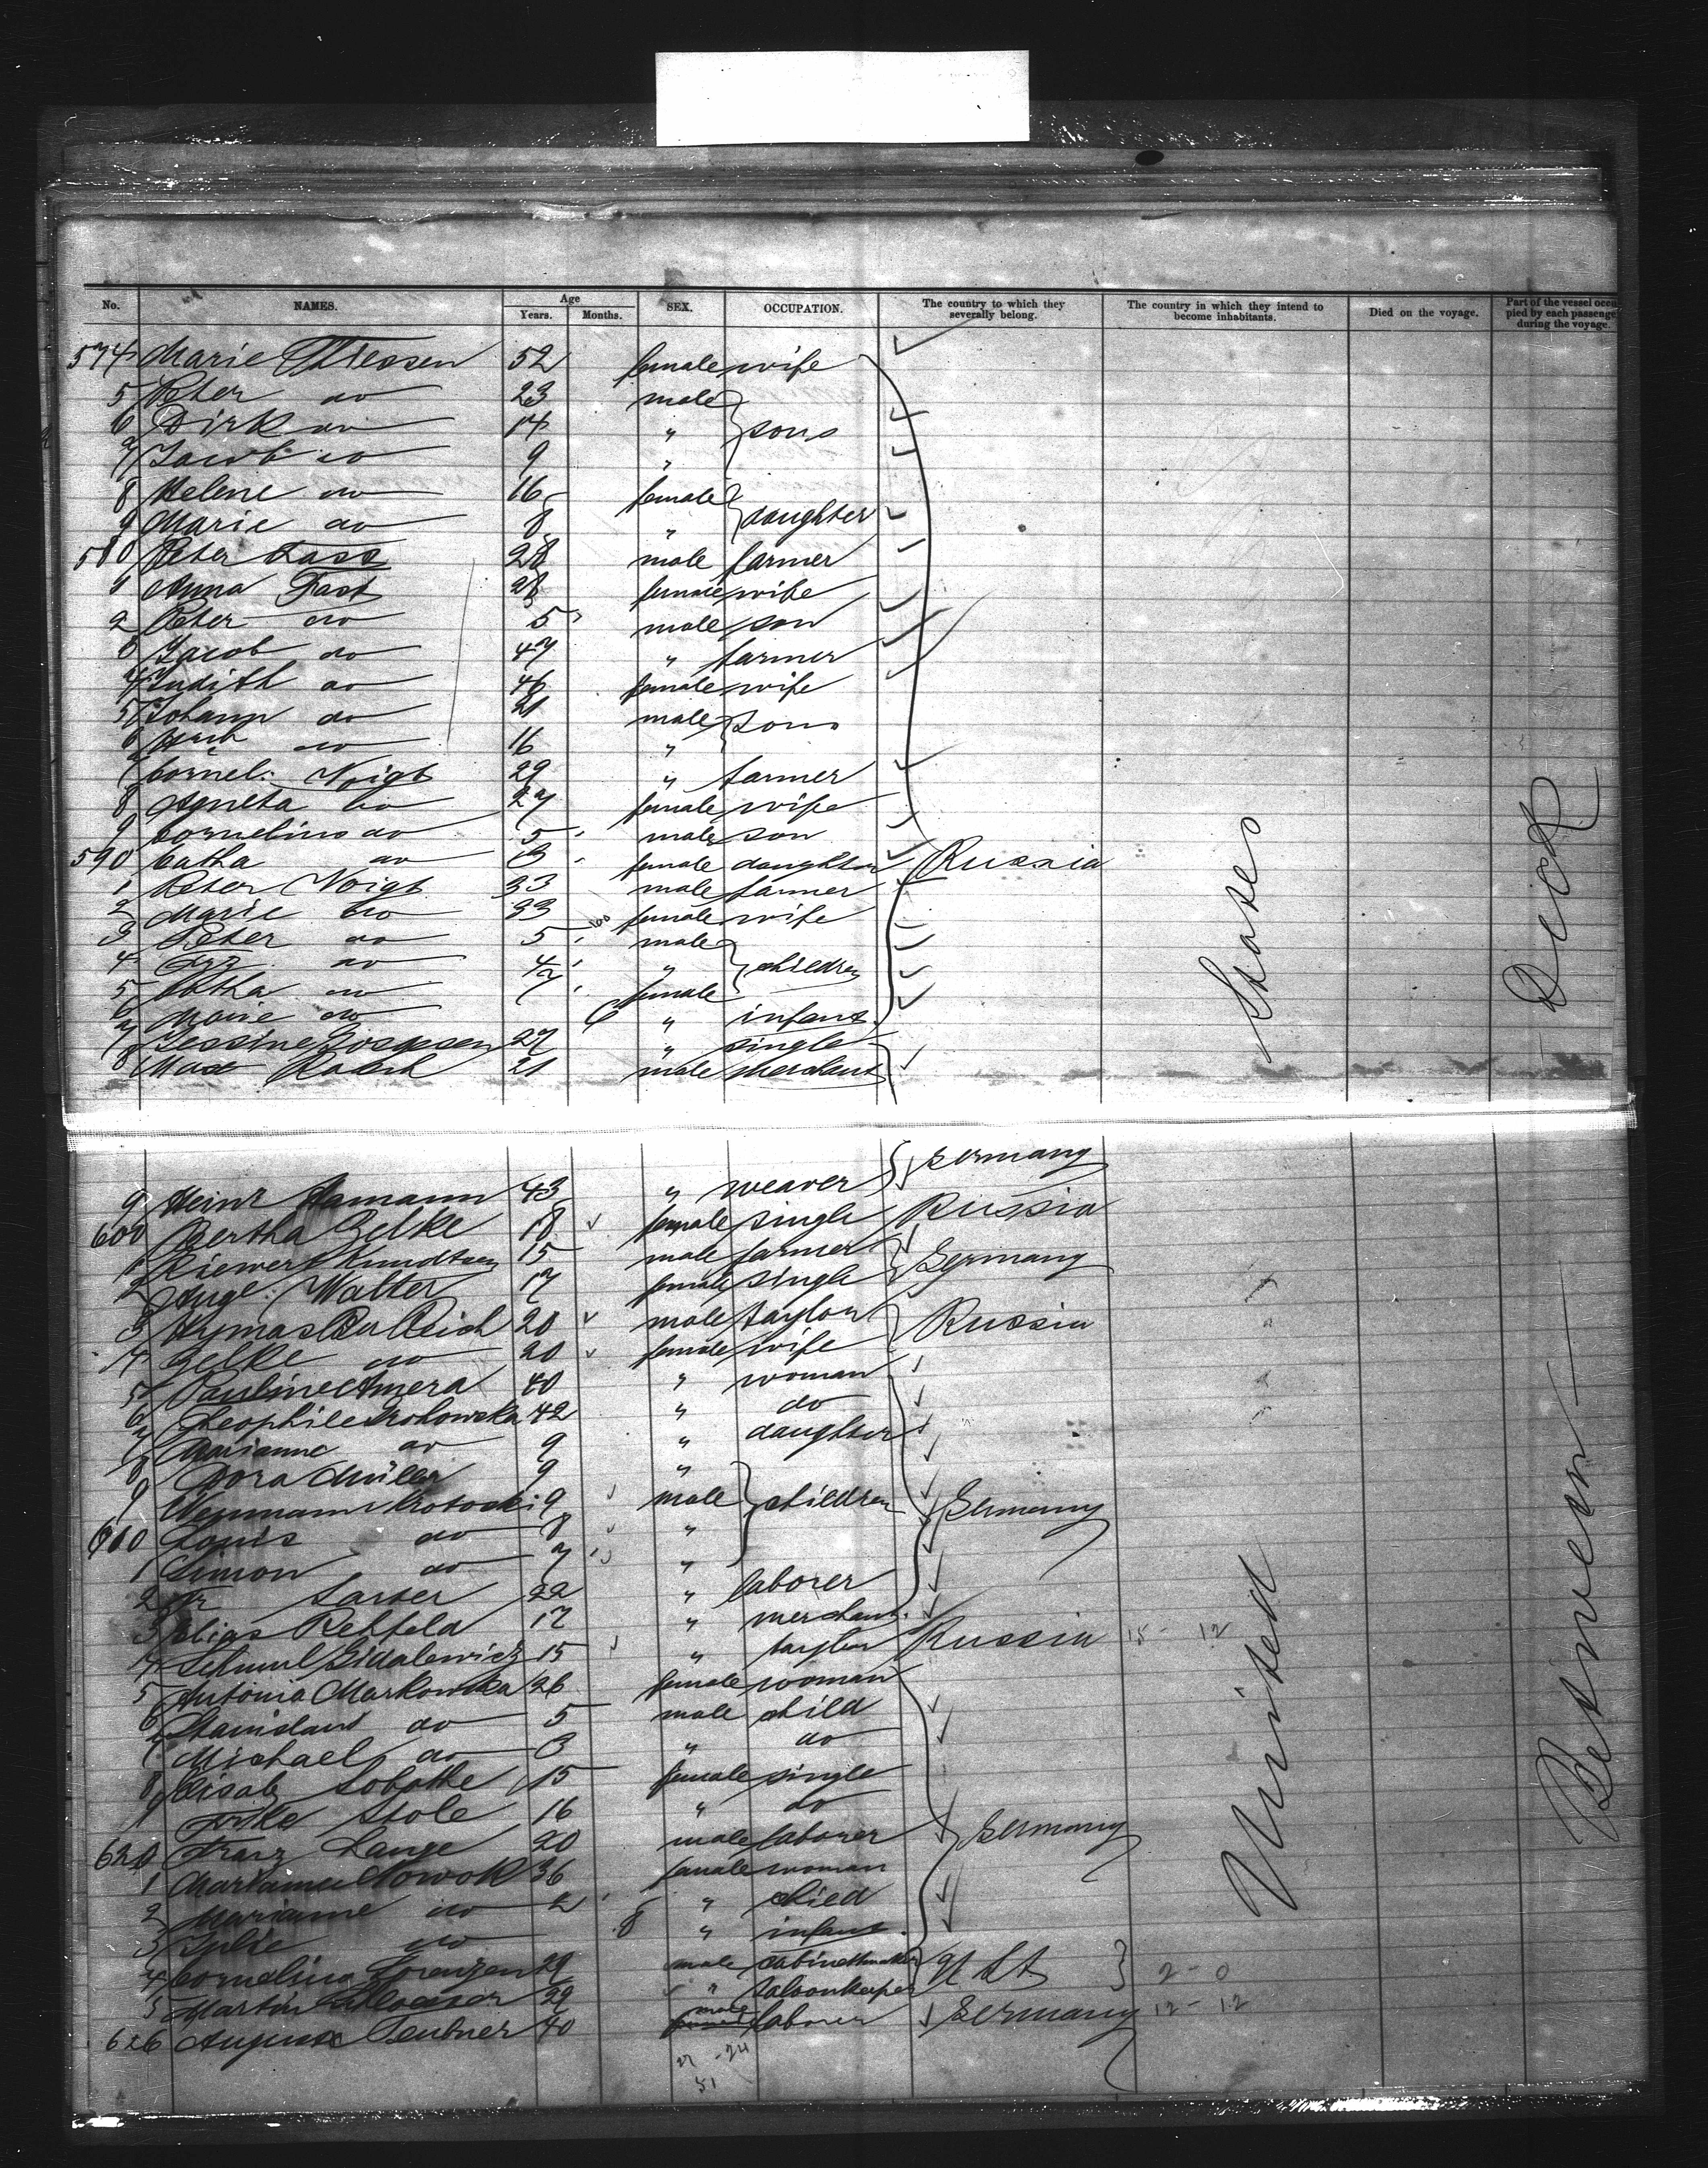 No. NAMES. Age Years. Months. SEX. OCCUPATION. The country to which they severally belong. The country in which they intend to become inhabitants. Died on the voyage. Part of the vessel occupied by each passenger during the voyage.
574 Marie Thiessen 52 female wife
5 Peter do 23 male
6 Dirk do 14 " sons
7 Jacob do 9 "
8 Helene do 16 female
9 Marie do 8 " daughter
580 Peter Fass 28 male farmer
1 Anna Fast 28 female wife
2 Peter do 5 male son
3 Jacob do 47 " farmer
4 Judith do 46 female wife
5 Johann do 21 male sons
6 do 16 "
7 Cornel. Voigt 29 " farmer
8 Agneta do 27 female wife
9 Cornelius do 5 male son
590 Catha do 3 female daughter Russia
1 Peter Voigt 33 male farmer
2 Marie do 33 female wife
3 Peter do 5 male
4 do 4 " children
5 do female
6 Marie do 6 " infant
7 27 " single
8 Max 21 male merchant
9 Heinr Hamann 43 " weaver Germany
600 Bertha Zelke 18 female single Russia
1 Riewert Knudtsen 15 male farmer Germany
2 Auge. Walter 17 female single
3 Hymas 20 male taylor Russia
4 Zelke do 20 female wife
5 Pauline 40 " woman
6 Theophile 42 " do
7 Marianne do 9 " daughter
8 Dora Müller 9 "
9 Krotoski 9 male children Germany
610 Louis do 8 "
1 Simon do 7 "
2 Fr 22 " laborer
3 Elias Rehfeld 17 " merchant
4 15 " taylor Russia 15 - 12
5 Antonia Markowska 26 female woman
6 Stanislaus do 5 male child
7 Michael do 3 " do
8 Elisab 15 female single
9 Stole 16 " do
620 Franz Lange 20 male laborer Germany
1 Nowok 36 female woman
2 Marianne do 2 " child
3 Julie do 8 " infant
4 Cornelius Lorenzen 29 male cabinetmaker 2 - 0
5 Martin 29 " saloonkeeper
626 August Teubner 40 male laborer Germany 12 - 12
United States
Between Deck